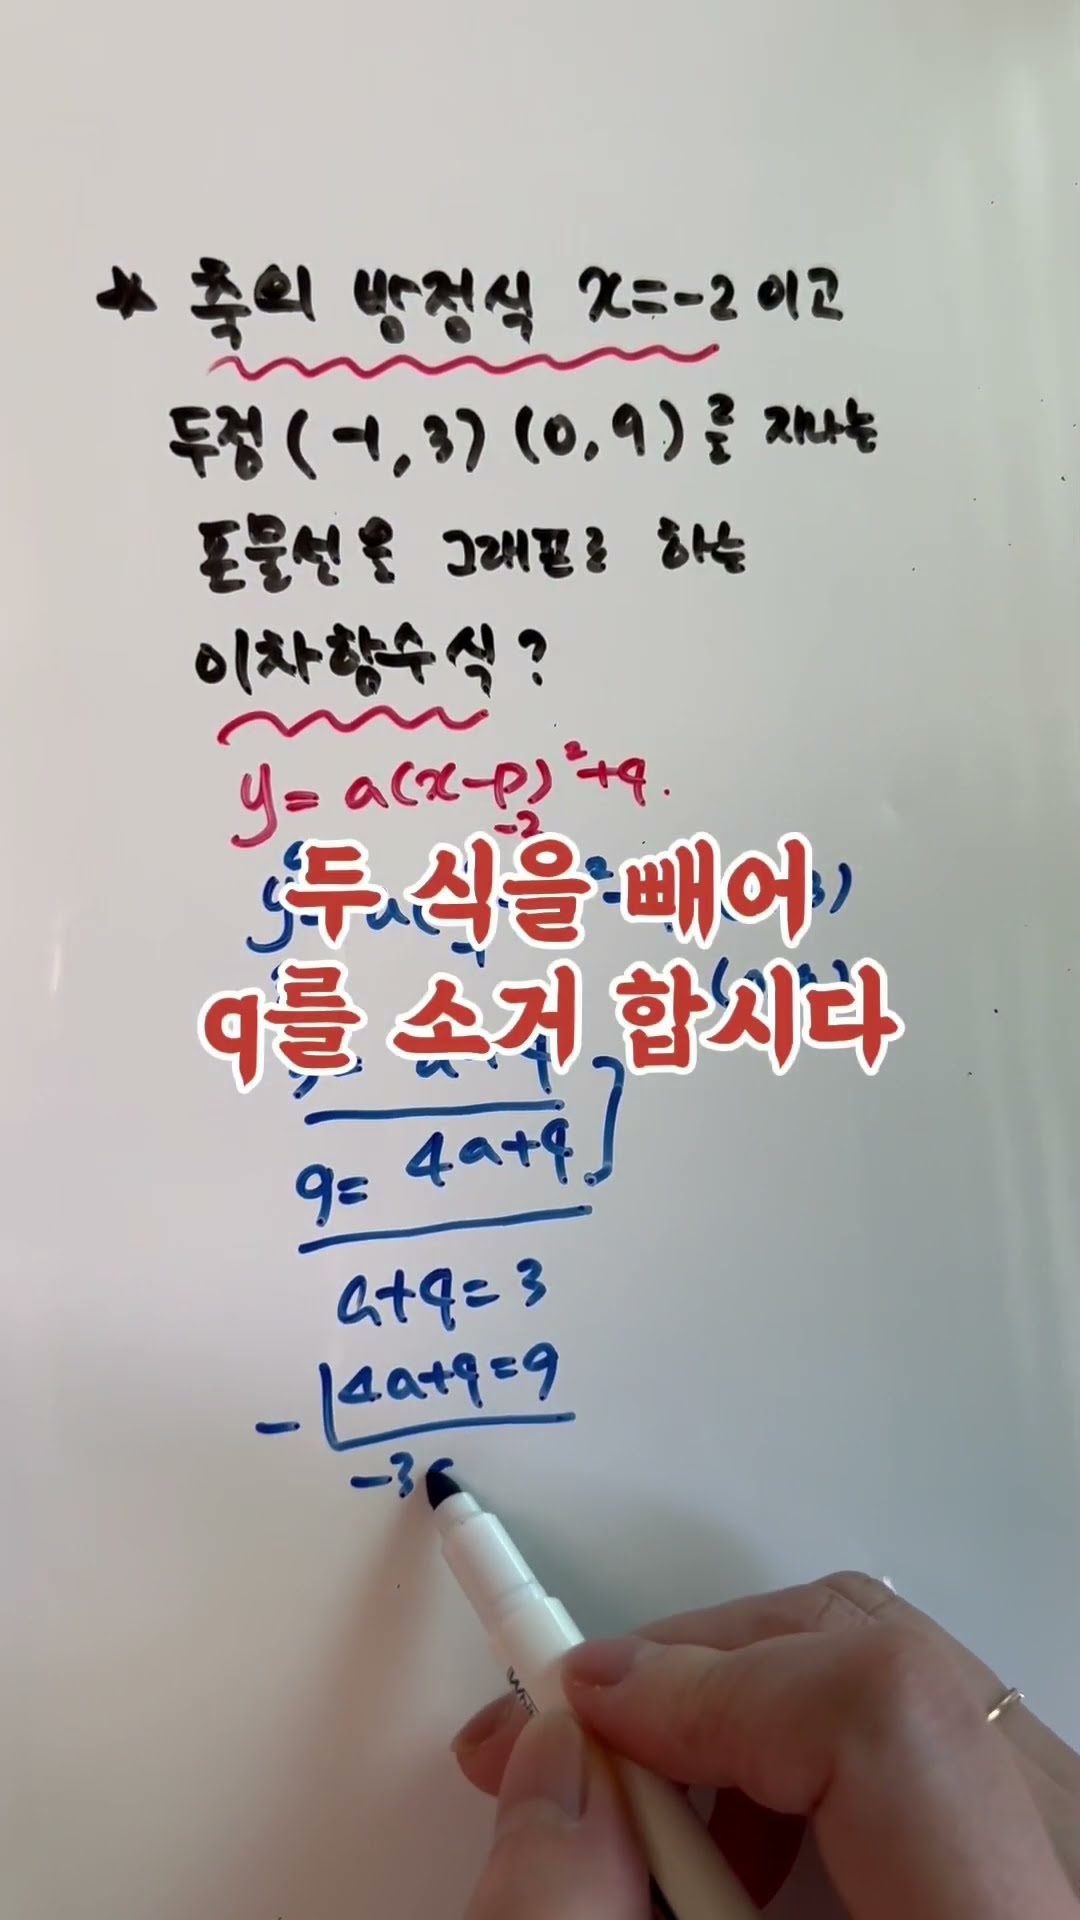 * 축의 방정식 x=-2 이고
두점 (-1, 3) (0, 9) 를 지나는
포물선을 그래프로 하는
이차함수식?
y = a(x-p)²+q.
-2
두 식을 빼어
q를 소거 합시다
a+q
9= 4a+q
a+q= 3
- 4a+q=9
-3